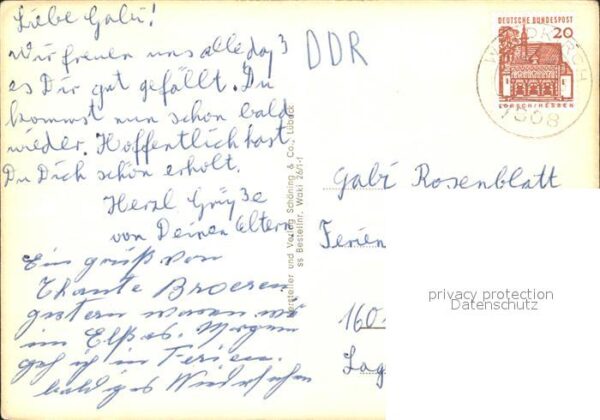 Liebe Gabi!
Wir freuen uns alle daß
es Dir gut gefällt. Du
kommst nun schon bald
wieder. Hoffentlich hast
Du Dich schön erholt.
Herzl Grüße
von Deinen Eltern
Ein gruß von
Thante Broeren
gestern waren wir
im Elsas. Morgen
geh ich in Ferien.
bald iges Wiedersehen
DDR
DEUTSCHE BUNDESPOST
20
LORSCH/HESSEN
WALDKIRCH
7808
Hersteller und Verlag Schöning & Co., Lübeck
ss Bestellnr. Waki 26/1-1
Gabi Rosenblatt
Ferien
160
Lag
privacy protection
Datenschutz